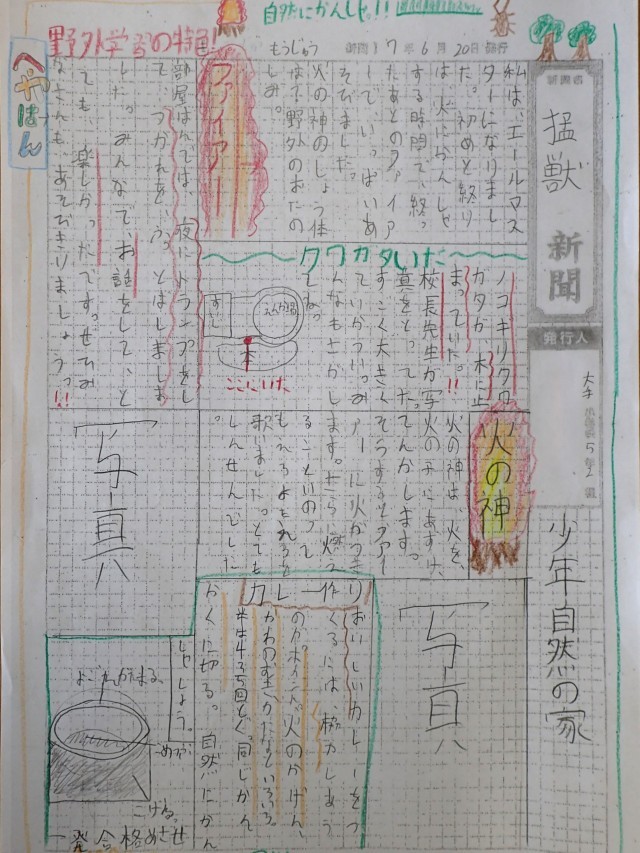 自然にかんしゃ!!
野外学習の特色!
もうじゅう
新聞17年6月20日発行
新聞名
猛獣新聞
発行人
少年自然の家
へやはん
ファイアー
私は、エールマス
ターになりまし
た。初めと終り
は、火にかんしゃ
する時間で、終っ
たあとのファイア
ーで、いっぱいあ
そびました。
火の神のしょう体
はで野外のおたの
しみ。
部屋はんでは、夜にトランプをし
て、つかれを、ふっとばしましま
した。みんなで、お話をして、と
ても、楽しかったです。ぜひみ
なさんも、あそびきりましょうっ!!
〜クワガタいた〜
ノコギリクワ
ガタが、木に止
まっていた。!!
校長先生が写
真をとってた。
すごく大きく
ていかつい。み
んなもさがし
てねっ
えんが場
木
ここにいた
火の神
火の神は、火を
火の子にあずけ、
てんかします。
そうするとファイ
アーに火がつき
ます。
歌いました。とても
しんせんでした
。
写真
写真
カレー作り
おいしいカレーをつ
くるには、協力しあう
のがポイント。火のかげん、
米は435回とぐ。同じかん
かくに切る。自然にかん
しゃしましょう。
こげる。
一発合格めざせ